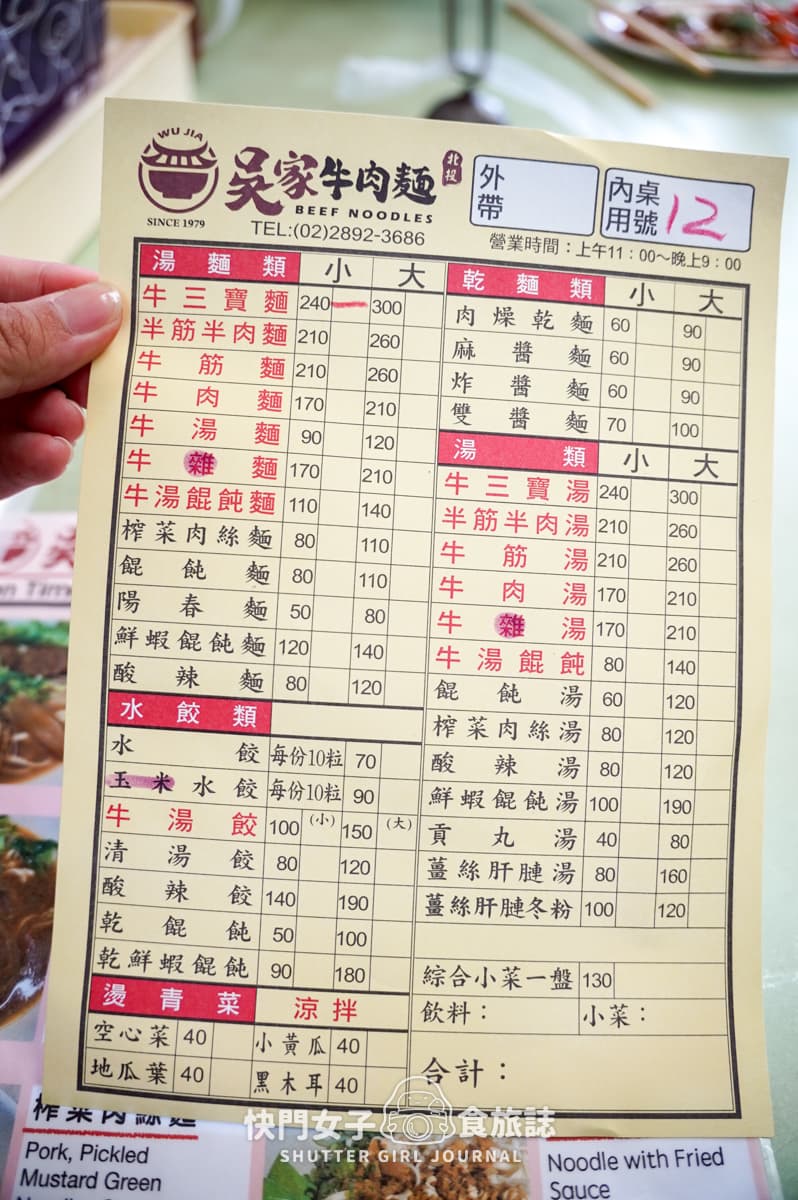 WU JIA
SINCE 1979
吳家牛肉麵 北投
BEEF NOODLES
TEL:(02)2892-3686
外帶
內用 桌號 12
營業時間：上午11：00~晚上9：00
湯麵類 小 大
牛三寶麵 240 一 300
半筋半肉麵 210 260
牛筋麵 210 260
牛肉麵 170 210
牛湯麵 90 120
牛雜麵 170 210
牛湯餛飩麵 110 140
榨菜肉絲麵 80 110
餛飩麵 80 110
陽春麵 50 80
鮮蝦餛飩麵 120 140
酸辣麵 80 120
水餃類
水餃 每份10粒 70
玉米水餃 每份10粒 90
牛湯餃 100 (小) 150 (大)
清湯餃 80 120
酸辣餃 140 190
乾餛飩 50 100
乾鮮蝦餛飩 90 180
燙青菜 涼拌
空心菜 40 小黃瓜 40
地瓜葉 40 黑木耳 40
乾麵類 小 大
肉燥乾麵 60 90
麻醬麵 60 90
炸醬麵 60 90
雙醬麵 70 100
湯類 小 大
牛三寶湯 240 300
半筋半肉湯 210 260
牛筋湯 210 260
牛肉湯 170 210
牛雜湯 170 210
牛湯餛飩 80 140
餛飩湯 60 120
榨菜肉絲湯 80 120
酸辣湯 80 120
鮮蝦餛飩湯 100 190
貢丸湯 40 80
薑絲肝腱湯 80 160
薑絲肝腱冬粉 100 120
綜合小菜一盤 130
飲料： 小菜：
合計：
快門女子 食旅誌
SHUTTER GIRL JOURNAL
榨菜肉絲麵
Pork, Pickled
Mustard Green
Noodle with Fried
Sauce